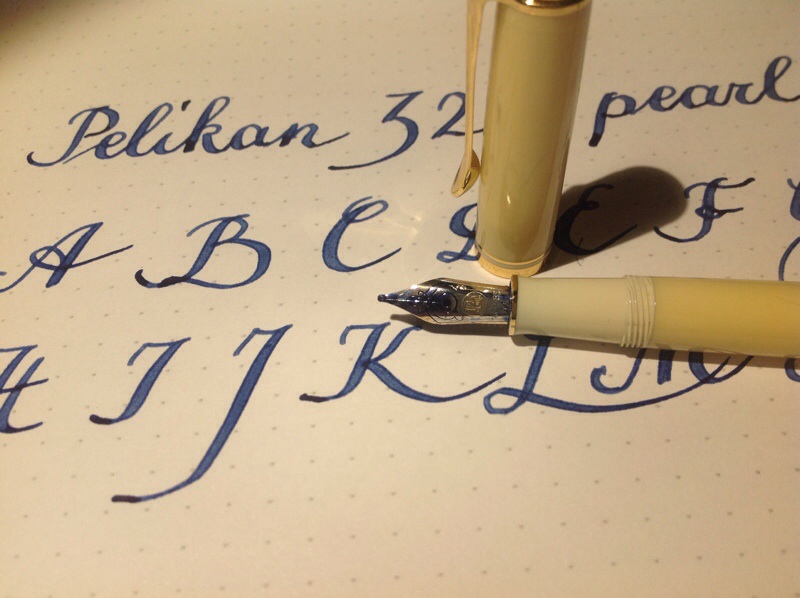 Pelikan 32 pearl
A B C D E F
H I J K L M